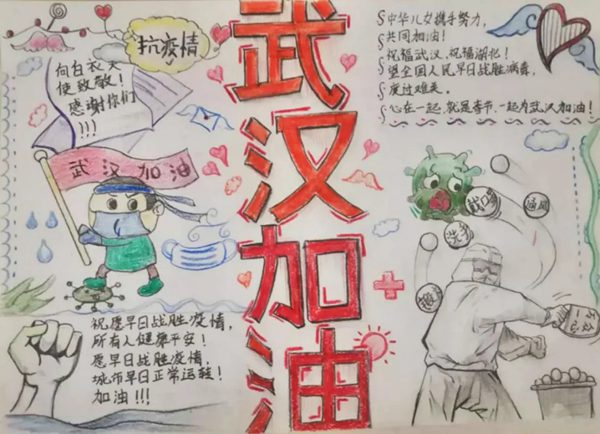 抗疫情
向白衣天
使致敬!
感谢你们
!!!
武汉加油
祝愿早日战胜疫情,
所有人健康平安!
愿早日战胜疫情,
城市早日正常运转!
加油!!!
武汉加油
中华儿女携手努力,
共同加油!
祝福武汉,祝福湖北!
望全国人民早日战胜病毒,
度过难关。
心在一起,就是春节,一起为武汉加油!
戴口罩
通风
洗手